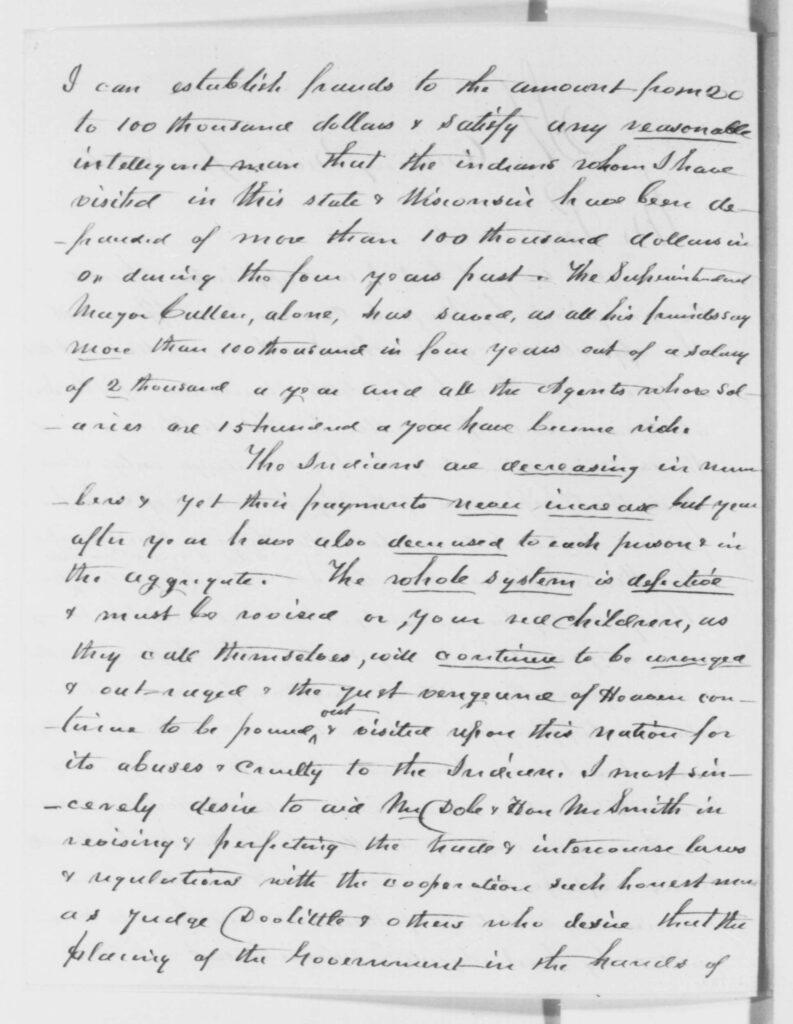 I can establish frauds to the amount from 20
to 100 thousand dollars & satisfy any reasonable
intelligent man that the indians whom I have
visited in this state & Wisconsin have been de-
-frauded of more than 100 thousand dollars in
or during the four years past. The Superintendend
Mayor Cullen, alone, has saved, as all his friends say
more than 100 thousand in four years out of a salary
of 2 thousand a year and all the Agents whose sal-
-aries are 15 hundred a year have become rich.
The Indians are decreasing in num-
-bers & yet their payments never increase but year
after year have also decreased to each person & in
the aggregate. The whole system is defective
& must be revised or, your red children, as
they call themselves, will continue to be wronged
& out-raged & the just vengeance of Heaven con-
-tinue to be pound out & visited upon this nation for
its abuses & cruelty to the Indian. I most sin-
-cerely desire to aid Mr Dole & Hon Mr Smith in
revising & perfecting the trade & intercourse laws
& regulations with the cooperation such honest men
as Judge Doolittle & others who desire that the
placing of the Government in the hands of